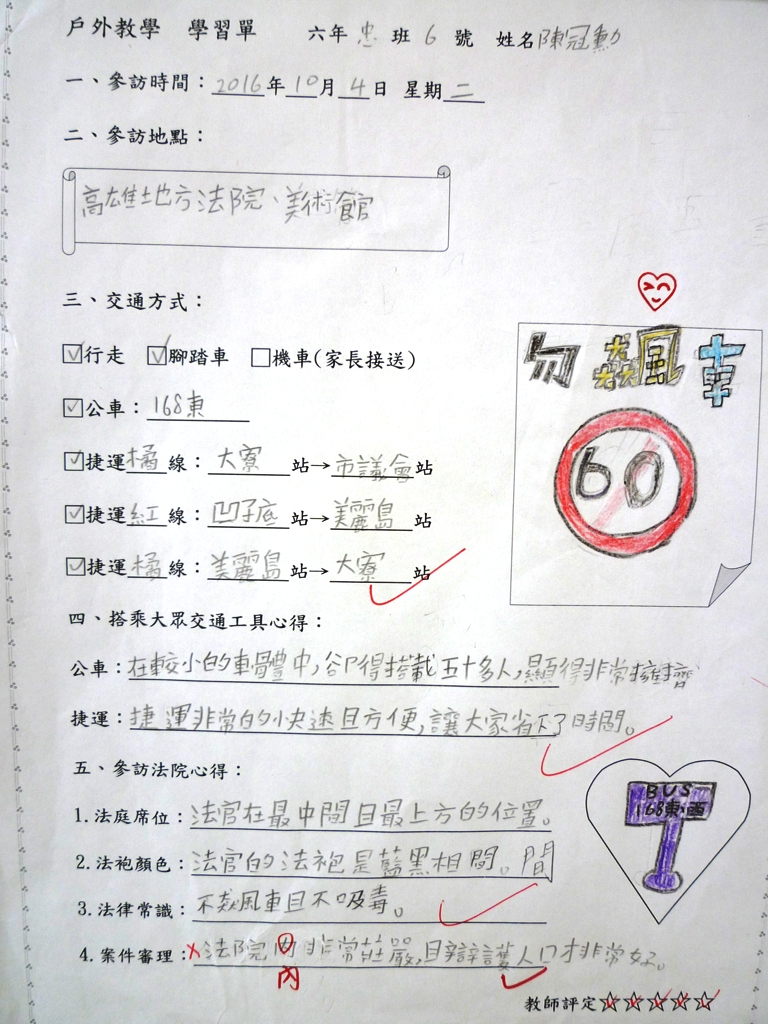 戶外教學 學習單 六年忠班6號 姓名陳冠勳
一、參訪時間:2016年10月4日 星期二
二、參訪地點:
高雄地方法院、美術館
三、交通方式:
☑行走 ☑腳踏車 □機車(家長接送)
☑公車:168東
☑捷運橘線:大寮站→市議會站
☑捷運紅線:凹子底站→美麗島站
☑捷運橘線:美麗島站→大寮站
勿飆車
60
四、搭乘大眾交通工具心得:
公車:在較小的車體中,卻得搭載五十多人,顯得非常擁擠
捷運:捷運非常的快速且方便,讓大家省下了時間。
五、參訪法院心得:
1.法庭席位:法官在最中間且最上方的位置。
2.法袍顏色:法官的法袍是藍黑相間。間
3.法律常識:不飆車且不吸毒。
4.案件審理:法院內非常莊嚴,且辯護人口才非常好。
內
BUS
168東·西
教師評定☆☆☆☆☆